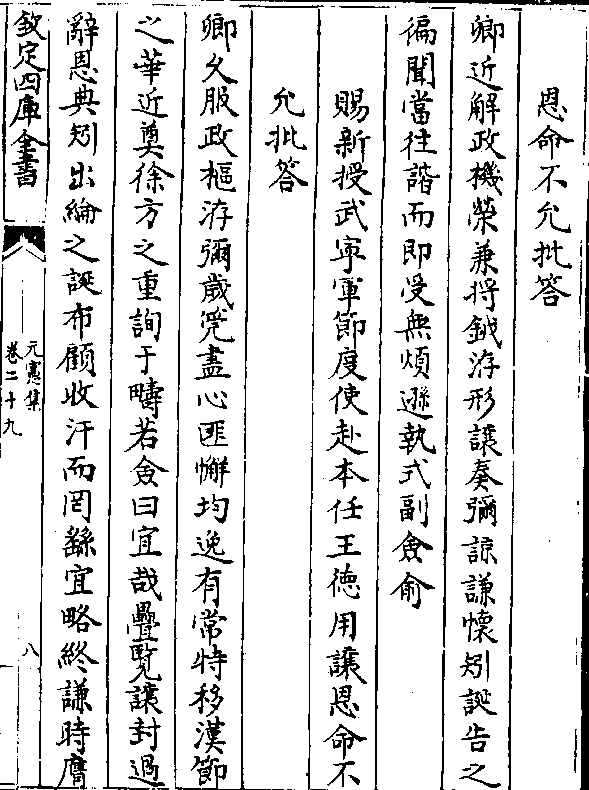 恩命不允批答
卿近解政機榮兼將鉞洊形讓奏彌諒謙懷矧誕告之
徧聞當往諧而即受無煩遜執式副僉俞
賜新授武寜軍節度使赴本任王徳用讓恩命不
允批答
卿久服政樞洊彌歲籥盡心匪懈均逸有常特移漢節
之華近奠徐方之重詢于疇若僉曰宜哉疊覽讓封過
辭恩典矧出綸之誕布顧收汗而罔繇宜略終謙時膺
欽定四庫全書
元憲集
卷二十九
八